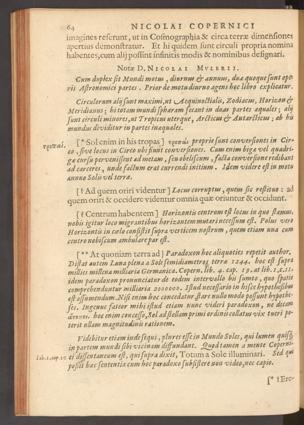 64 NICOLAI COPERNICI
imagines referunt, ut in Cosmographia & circa terræ dimensiones
apertius demonstratur. Et hi quidem sunt circuli propria nomina
habentes, cum alij possint infinitis modis & nominibus designari.
Notæ D. NICOLAI MVLERII.
Cum duplex sit Mundi motus, diurnus & annuus, duæ quoque sunt
Astronomici partes. Prior de motu diurno agens hoc libro explicatur.
Circulorum alij sunt maximi, ut Æquinoctialis, Zodiacus, Horizon &
Meridianus; hi totam mundi sphæram secant in duas partes equales; alij
sunt circuli minores, ut Tropicus uterque, Arcticus & Antarcticus; ab his
mundus dividitur in partes inæquales.
[* Sol enim in his tropas] proprie sunt conversiones in Cir-
co, sive locus in Circo ubi sunt conversiones. Cum enim bigæ vel quadri-
gæ cursu pervenissent ad metam, seu obeliscum, facta conversione redibant
ad carceres, unde factum erat currendi initium. Idem videre est in motu
annuo Solis vel terræ.
[† Ad quem oriri videntur] Locus corruptus, quem sic restituo: ad
quem oriri & occidere videntur omnia quæ oriuntur & occidunt.
Centrum habentem] Horizontis centrum est locus in quo stamus,
nobis igitur loco migrantibus horizontem mutari necessum est. Polus vero
Horizontis in cœlo consistit supra verticem nostrum, quem etiam una cum
centro nobiscum ambulare par est.
[** At quoniam terra ad] Paradoxon hoc aliquoties repetit author.
Distat autem Luna plena a Sole semidiametros terræ 1244. hoc est supra
milies millena milliaria Germanica. Copern. lib. 4. cap. 19. at lib. 1.
idem paradoxon pronunciatur de eodem intervallo bis sumto, quo spatio
comprehenduntur milliaria 2020000. Istud necessario in hisce hypothesibus
est assumendum. Nisi enim hoc concedatur stare nullo modo possunt hypothe-
ses. Ingenue fateor mihi istud etiam nunc videri paradoxum, ne dicam
hoc enim concesso, Sol ad stellam primi ordinis collatus vix tueri po-
terit ullam magnitudinis rationem.
Videbitur etiam inde sequi, plures esse in Mundo Soles, qui lumen
in partem mundi sibi vicinam diffundant. Quod tamen a mente Coperni-
ci dissentaneum est, qui supra dixit, Totum a Sole illuminari. Sed qui
possit hæc sententia cum hoc paradoxo subsistere non video, nec capio.